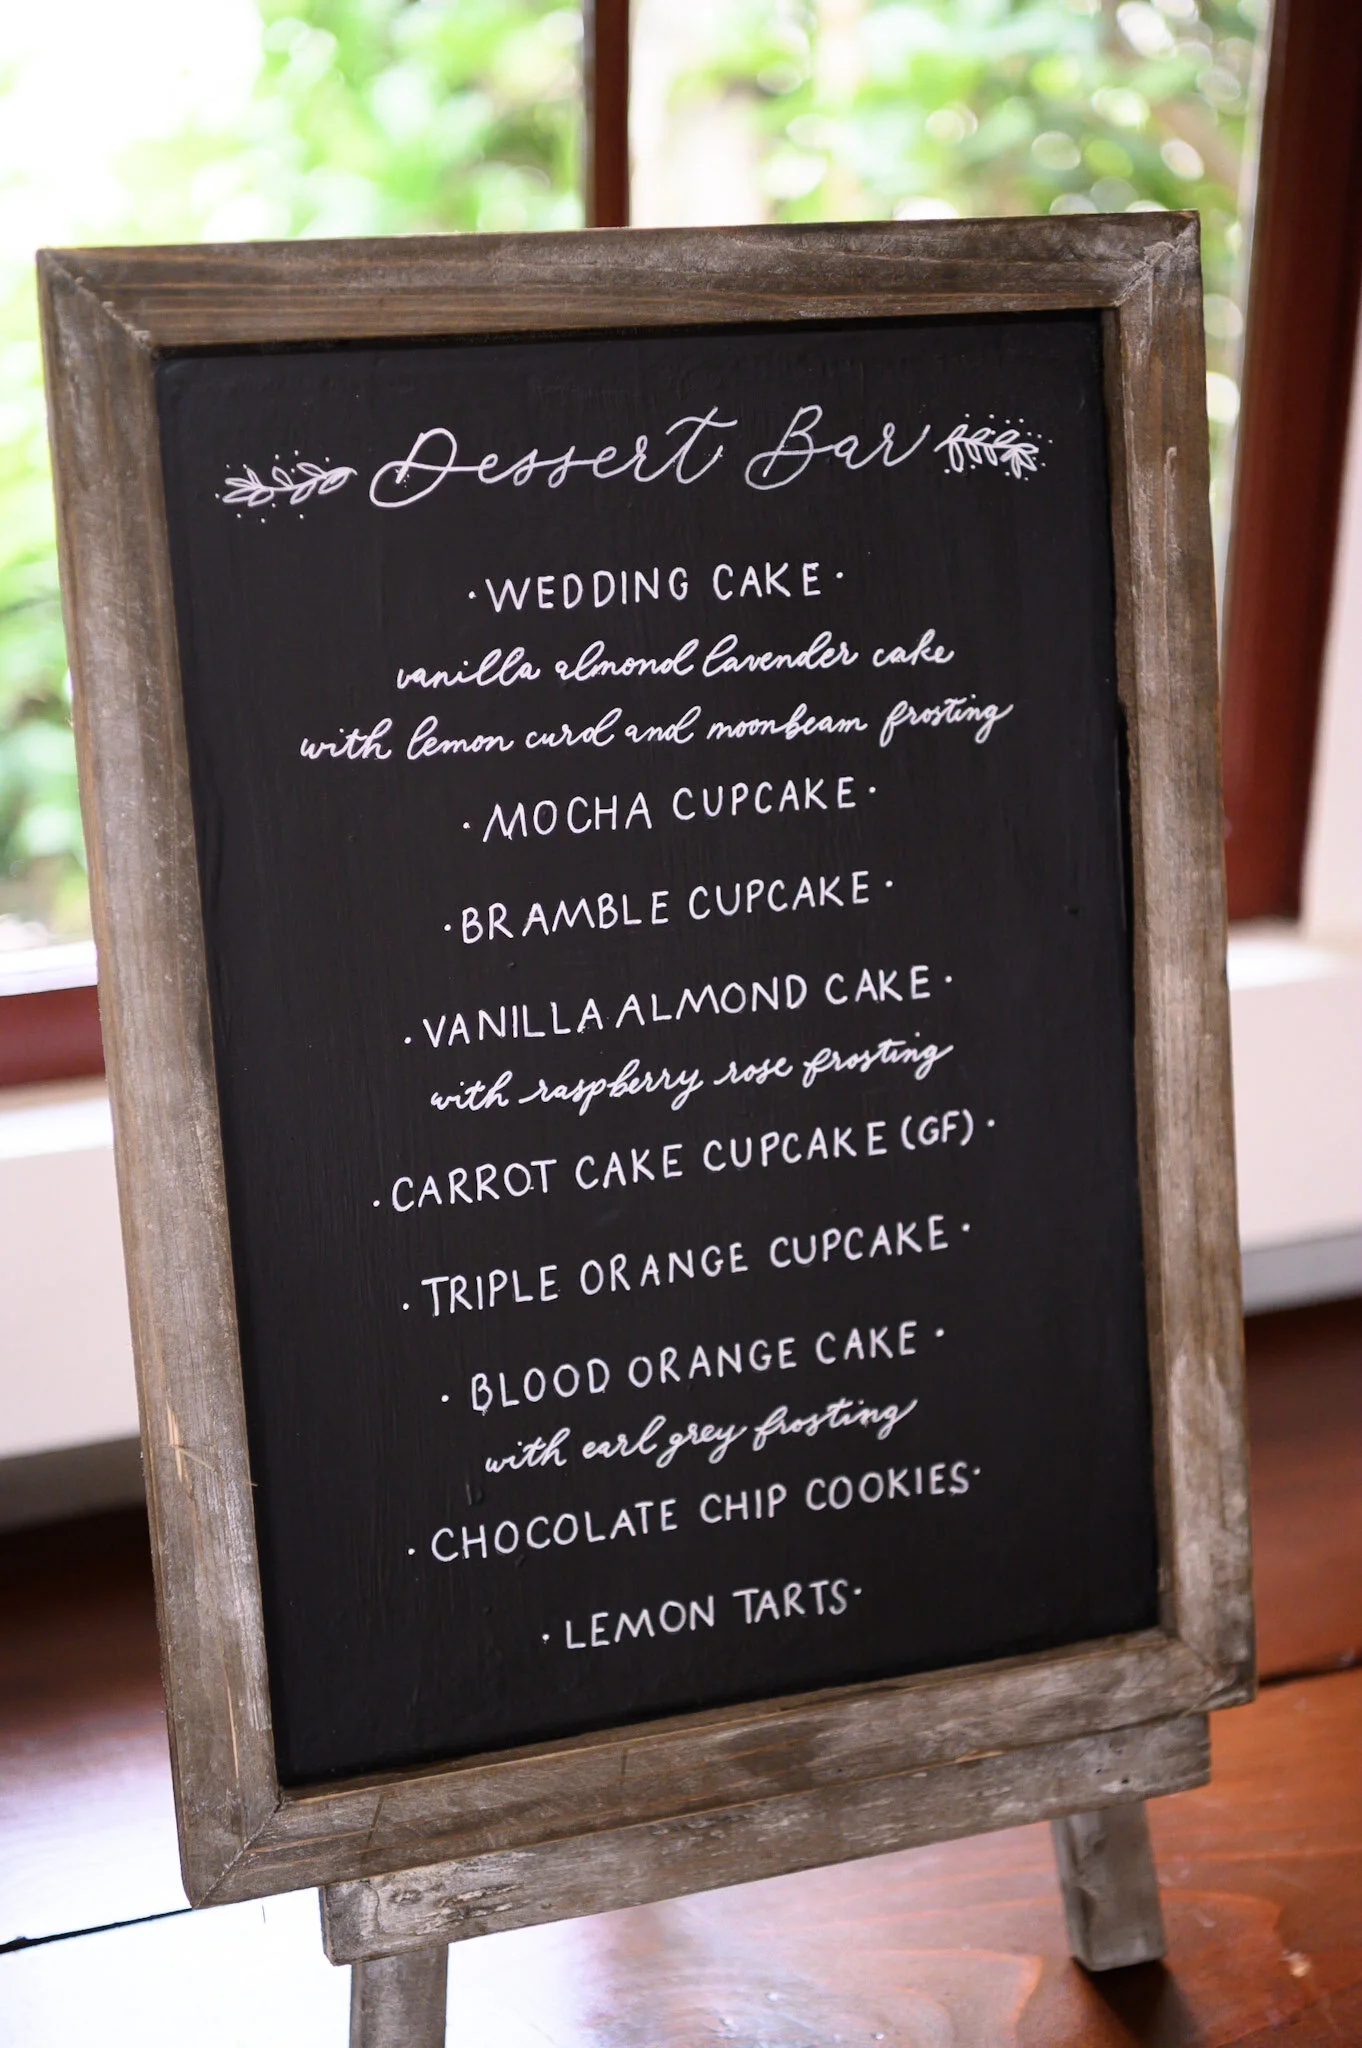 Dessert Bar
· WEDDING CAKE ·
vanilla almond lavender cake
with lemon curd and moonbeam frosting
· MOCHA CUPCAKE ·
· BRAMBLE CUPCAKE ·
· VANILLA ALMOND CAKE ·
with raspberry rose frosting
· CARROT CAKE CUPCAKE (GF) ·
· TRIPLE ORANGE CUPCAKE ·
· BLOOD ORANGE CAKE ·
with earl grey frosting
· CHOCOLATE CHIP COOKIES ·
· LEMON TARTS ·